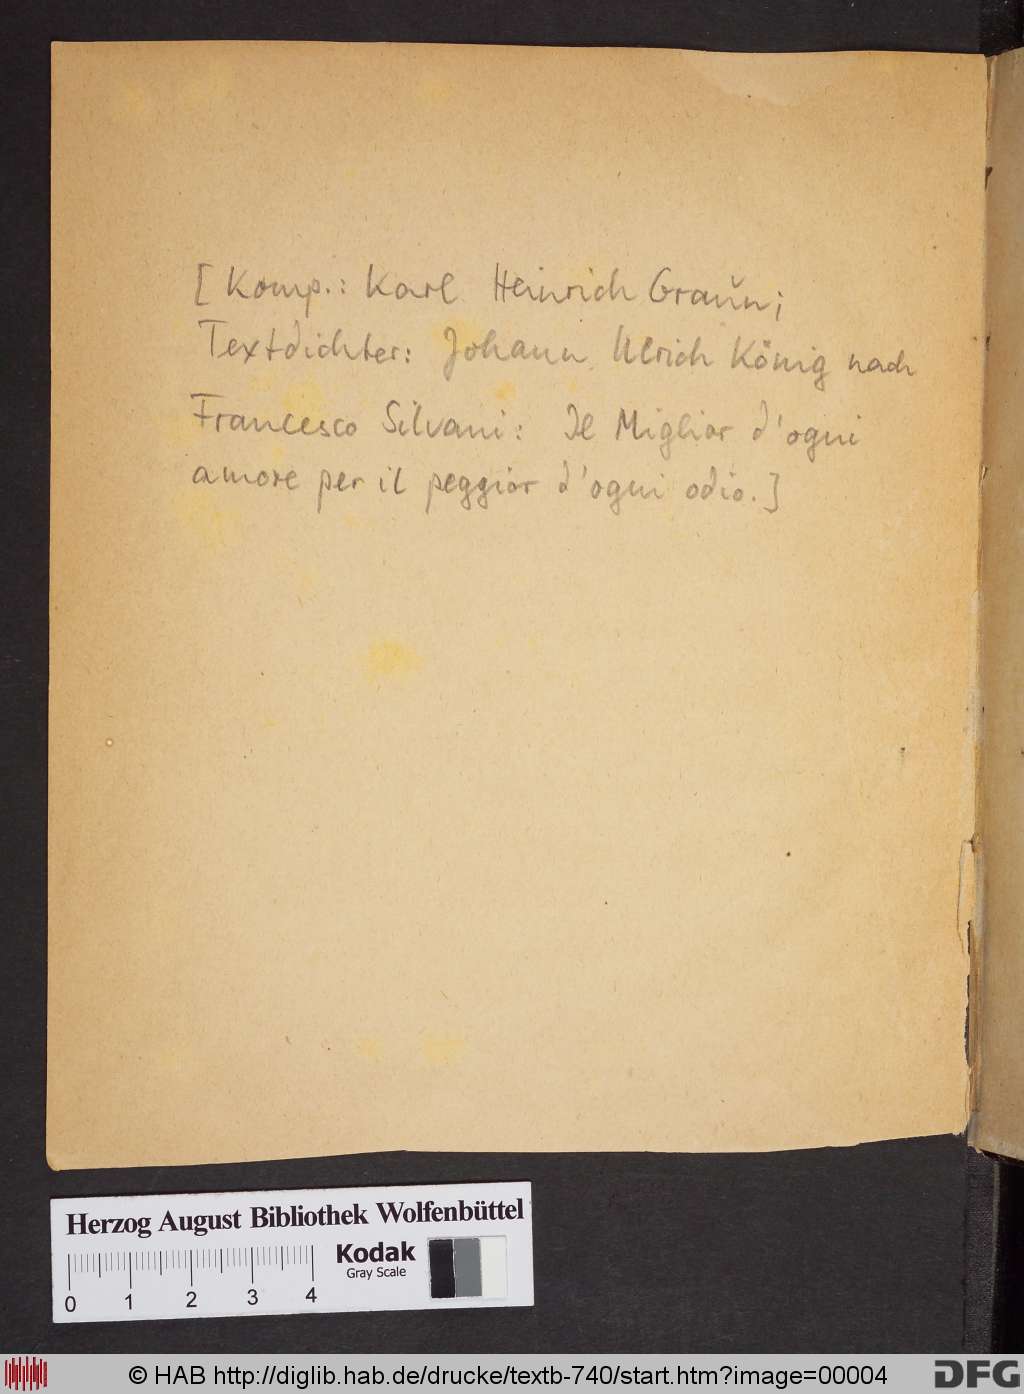 [Komp.: Karl Heinrich Graun;
Textdichter: Johann Ulrich König nach
Francesco Silvani: Il Miglior d'ogni
amore per il peggior d'ogni odio.]
Herzog August Bibliothek Wolfenbüttel
Kodak
Gray Scale
0 1 2 3 4
© HAB http://diglib.hab.de/drucke/textb-740/start.htm?image=00004
DFG